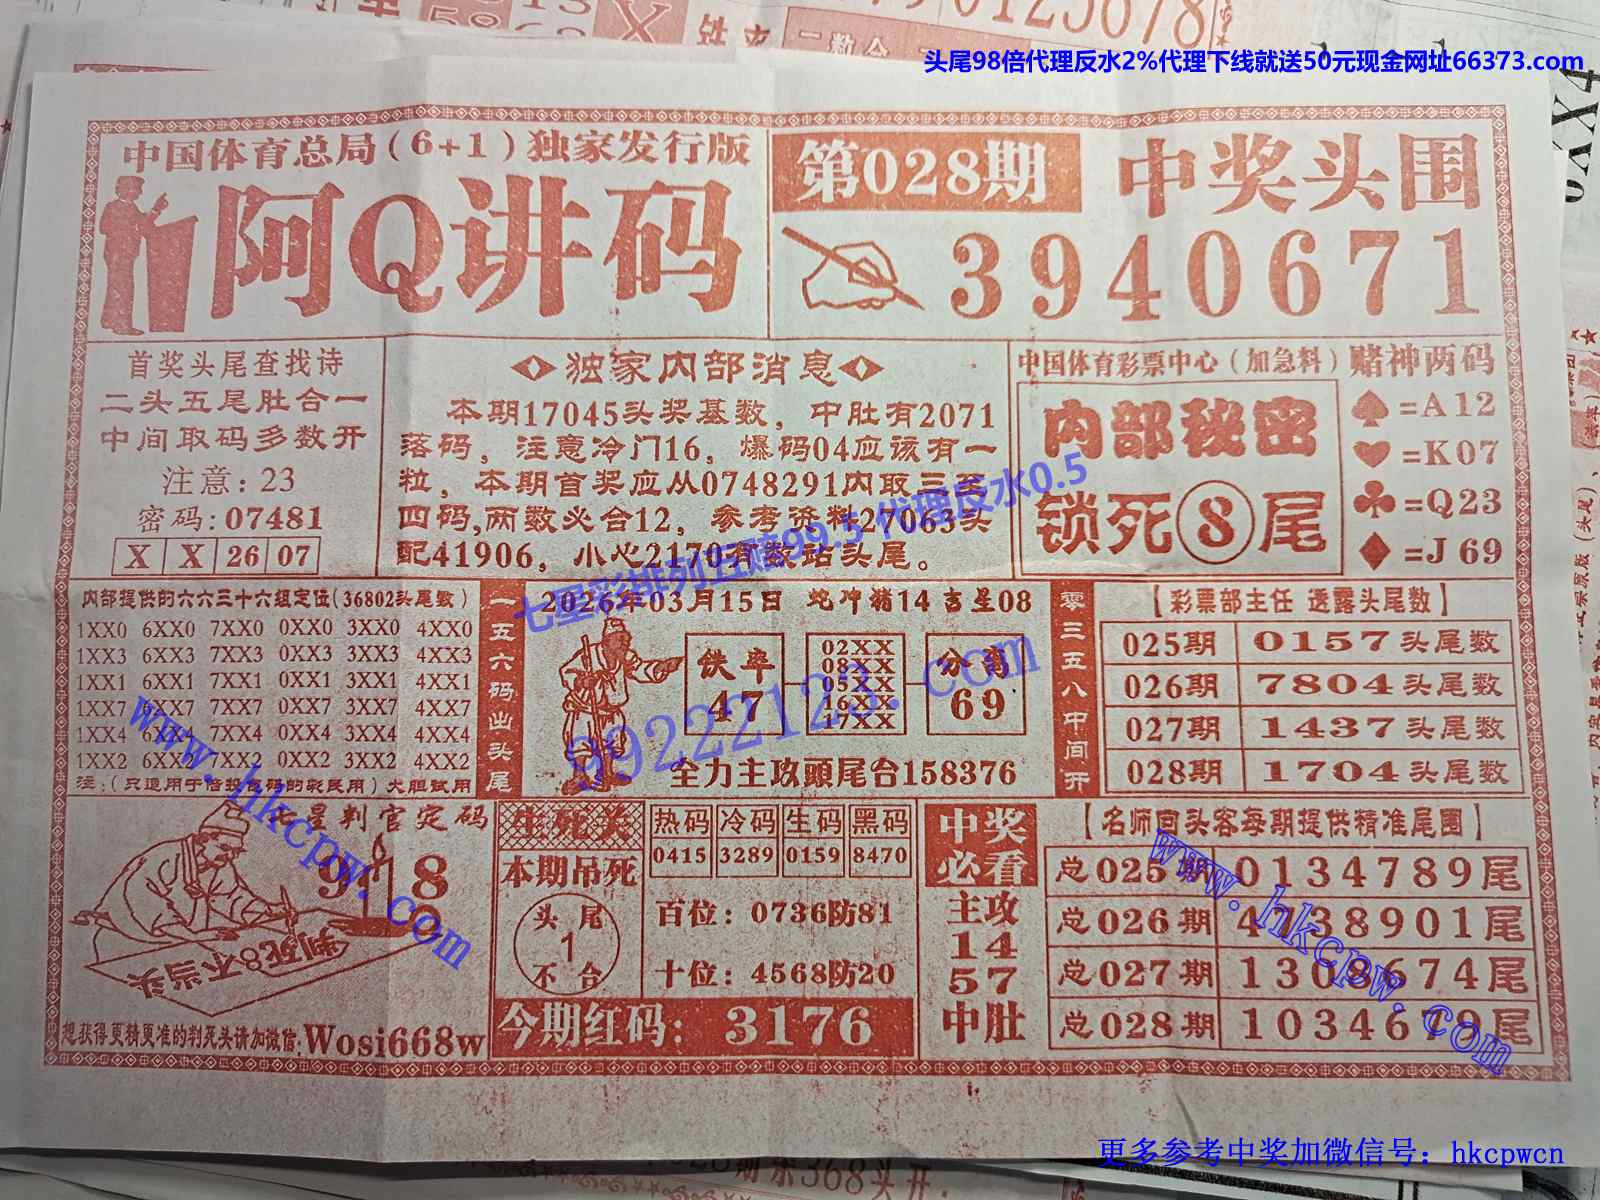 头尾98倍代理反水2%代理下线就送50元现金网址66373.com
中国体育总局(6+1)独家发行版
阿Q讲码
第028期
中奖头围
3940671
首奖头尾查找诗
二头五尾肚合一
中间取码多数开
注意:23
密码:07481
X X 26 07
独家内部消息
本期17045头奖基数，中肚有2071
落码，注意冷门16，爆码04应该有一
粒，本期首奖应从0748291内取三至
四码,两数必合12，参考资料27063头
配41906，小心2170有数站头尾。
中国体育彩票中心（加急料）
赌神两码
内部秘密
锁死8尾
♠=A12
♥=K07
♣=Q23
♦=J69
七星彩排列五赔99.5 代理反水0.5
内部提供的六六三十六组定位(36802头尾数)
1XX0 6XX0 7XX0 0XX0 3XX0 4XX0
1XX3 6XX3 7XX3 0XX3 3XX3 4XX3
1XX1 6XX1 7XX1 0XX1 3XX1 4XX1
1XX7 6XX7 7XX7 0XX7 3XX7 4XX7
1XX4 6XX4 7XX4 0XX4 3XX4 4XX4
1XX2 6XX2 7XX2 0XX2 3XX2 4XX2
注:(只适用于倍投包码的彩民用)大胆试用
一五六码出头尾
2026年03月15日 蛇冲猪14 吉星08
铁率
47
02XX
08XX
05XX
16XX
17XX
分离
69
全力主攻頭尾台158376
99222123.com
零三五八中间开
【彩票部主任 透露头尾数】
025期 0157头尾数
026期 7804头尾数
027期 1437头尾数
028期 1704头尾数
www.hkcpw.com
七星判官定码
918
判死8不当头
想获得更精更准的判死头请加微信:Wosi668w
生死关
本期吊死
头尾
1
不合
热码 冷码 生码 黑码
0415 3289 0159 8470
百位：0736防81
十位：4568防20
今期红码：3176
中奖
必看
主攻
14
57
中肚
【名师回头客每期提供精准尾围】
总025期 0134789尾
总026期 4738901尾
总027期 1308674尾
总028期 1034679尾
www.hkcpw.com
更多参考中奖加微信号：hkcpwcn